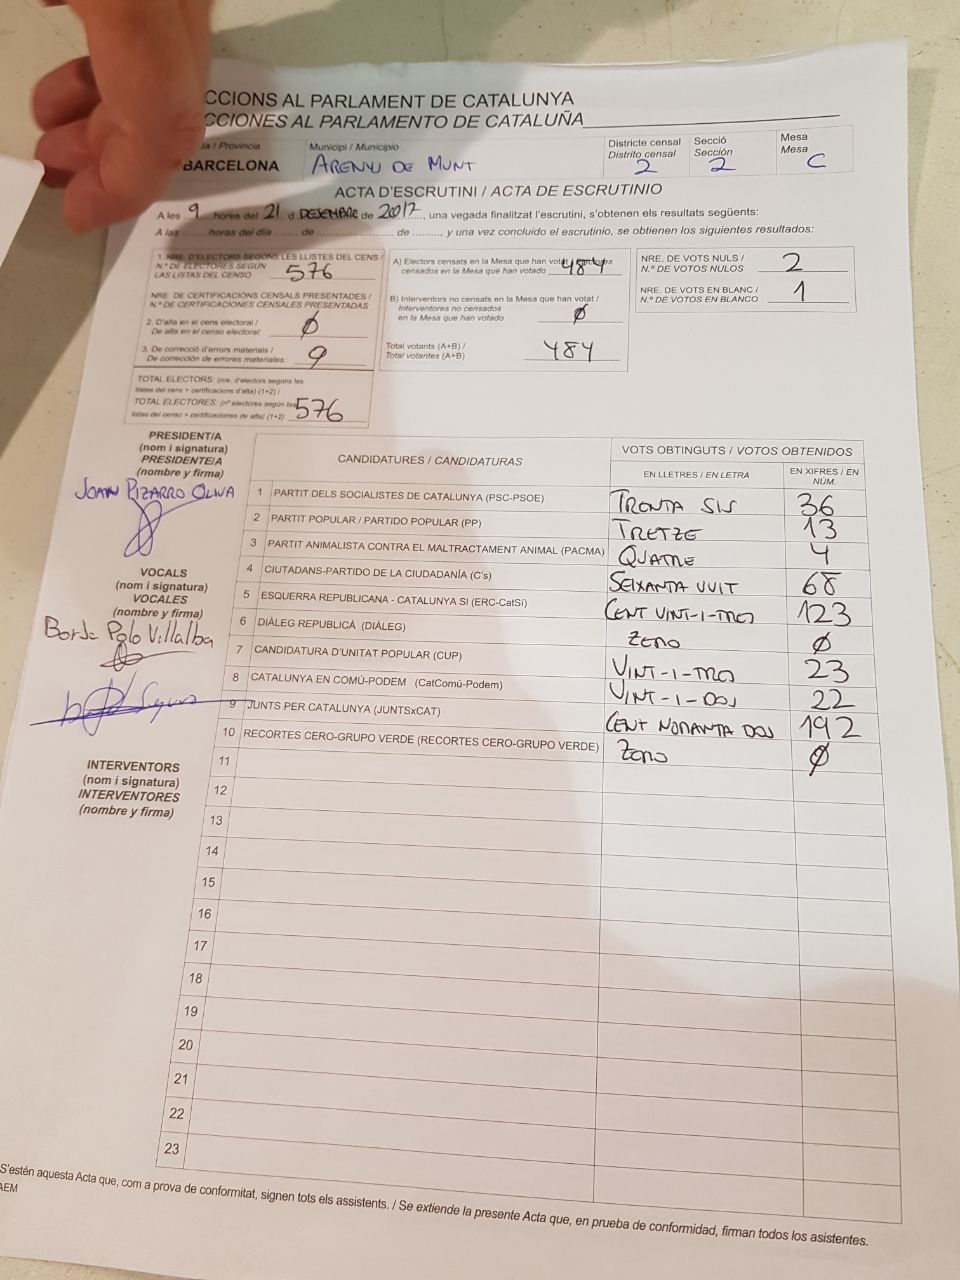 CCIONS AL PARLAMENT DE CATALUNYA
CCIONES AL PARLAMENTO DE CATALUÑA
/ Provincia
BARCELONA
Municipi / Municipio
ARENYS DE MUNT
Districte censal
Distrito censal
2
Secció
Sección
2
Mesa
Mesa
C
ACTA D'ESCRUTINI / ACTA DE ESCRUTINIO
A les 9 hores del 21 d DESEMBRE de 2017, una vegada finalitzat l'escrutini, s'obtenen els resultats següents:
A las ........ horas del día ........ de ........................ de ........, y una vez concluido el escrutinio, se obtienen los siguientes resultados:
1. NRE. D'ELECTORS SEGONS LES LLISTES DEL CENS /
N.º DE ELECTORES SEGÚN
LAS LISTAS DEL CENSO 576
NRE. DE CERTIFICACIONS CENSALS PRESENTADES /
N.º DE CERTIFICACIONES CENSALES PRESENTADAS
2. D'alta en el cens electoral /
De alta en el censo electoral: 0
3. De correcció d'errors materials /
De corrección de errores materiales: 9
TOTAL ELECTORS: (nre. d'electors segons les
llistes del cens + certificacions d'alta) (1+2) /
TOTAL ELECTORES: (nº electores según las
listas del censo + certificaciones de alta) (1+2) 576
A) Electors censats en la Mesa que han votat / Electores
censados en la Mesa que han votado 484
B) Interventors no censats en la Mesa que han votat /
Interventores no censados
en la Mesa que han votado 0
Total votants (A+B) /
Total votantes (A+B) 484
NRE. DE VOTS NULS /
N.º DE VOTOS NULOS 2
NRE. DE VOTS EN BLANC /
N.º DE VOTOS EN BLANCO 1
PRESIDENT/A
(nom i signatura)
PRESIDENTE/A
(nombre y firma)
JOAN PIZARRO OLIVA
VOCALS
(nom i signatura)
VOCALES
(nombre y firma)
Borja Polo Villalba
Segura
INTERVENTORS
(nom i signatura)
INTERVENTORES
(nombre y firma)
CANDIDATURES / CANDIDATURAS
VOTS OBTINGUTS / VOTOS OBTENIDOS
EN LLETRES / EN LETRA
EN XIFRES / EN NÚM.
1 PARTIT DELS SOCIALISTES DE CATALUNYA (PSC-PSOE) TRENTA SIS 36
2 PARTIT POPULAR / PARTIDO POPULAR (PP) TRETZE 13
3 PARTIT ANIMALISTA CONTRA EL MALTRACTAMENT ANIMAL (PACMA) QUATRE 4
4 CIUTADANS-PARTIDO DE LA CIUDADANÍA (C's) SEIXANTA VUIT 68
5 ESQUERRA REPUBLICANA - CATALUNYA SÍ (ERC-CatSí) CENT VINT-I-TRES 123
6 DIÀLEG REPUBLICÀ (DIÀLEG) ZERO 0
7 CANDIDATURA D'UNITAT POPULAR (CUP) VINT-I-TRES 23
8 CATALUNYA EN COMÚ-PODEM (CatComú-Podem) VINT-I-DOS 22
9 JUNTS PER CATALUNYA (JUNTSxCAT) CENT NORANTA DOS 192
10 RECORTES CERO-GRUPO VERDE (RECORTES CERO-GRUPO VERDE) ZERO 0
11
12
13
14
15
16
17
18
19
20
21
22
23
S'estén aquesta Acta que, com a prova de conformitat, signen tots els assistents. / Se extiende la presente Acta que, en prueba de conformidad, firman todos los asistentes.
AEM